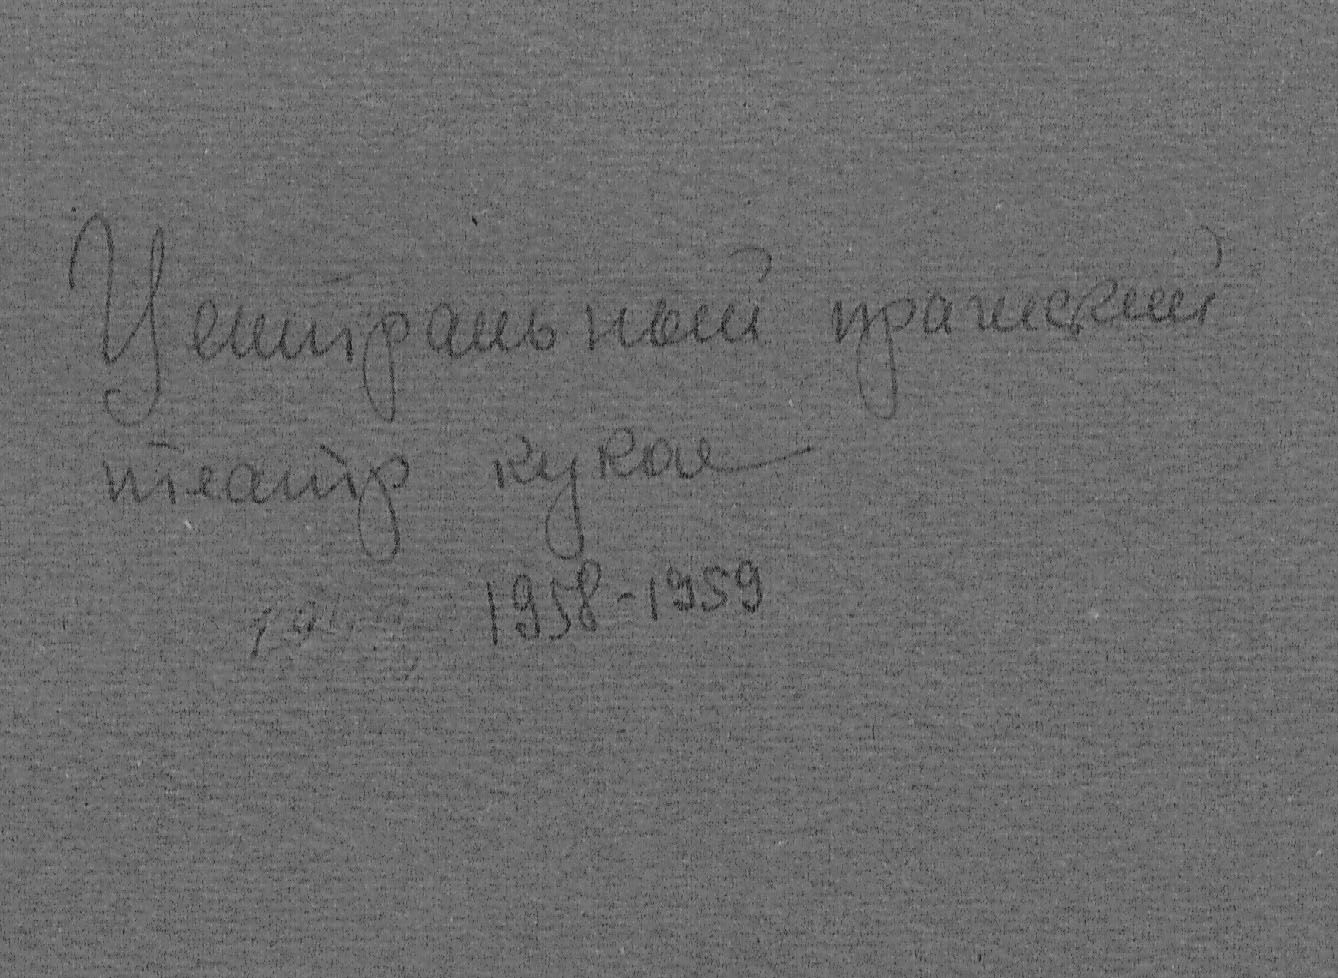 Центральный пражский
театр кукол
1958-1959